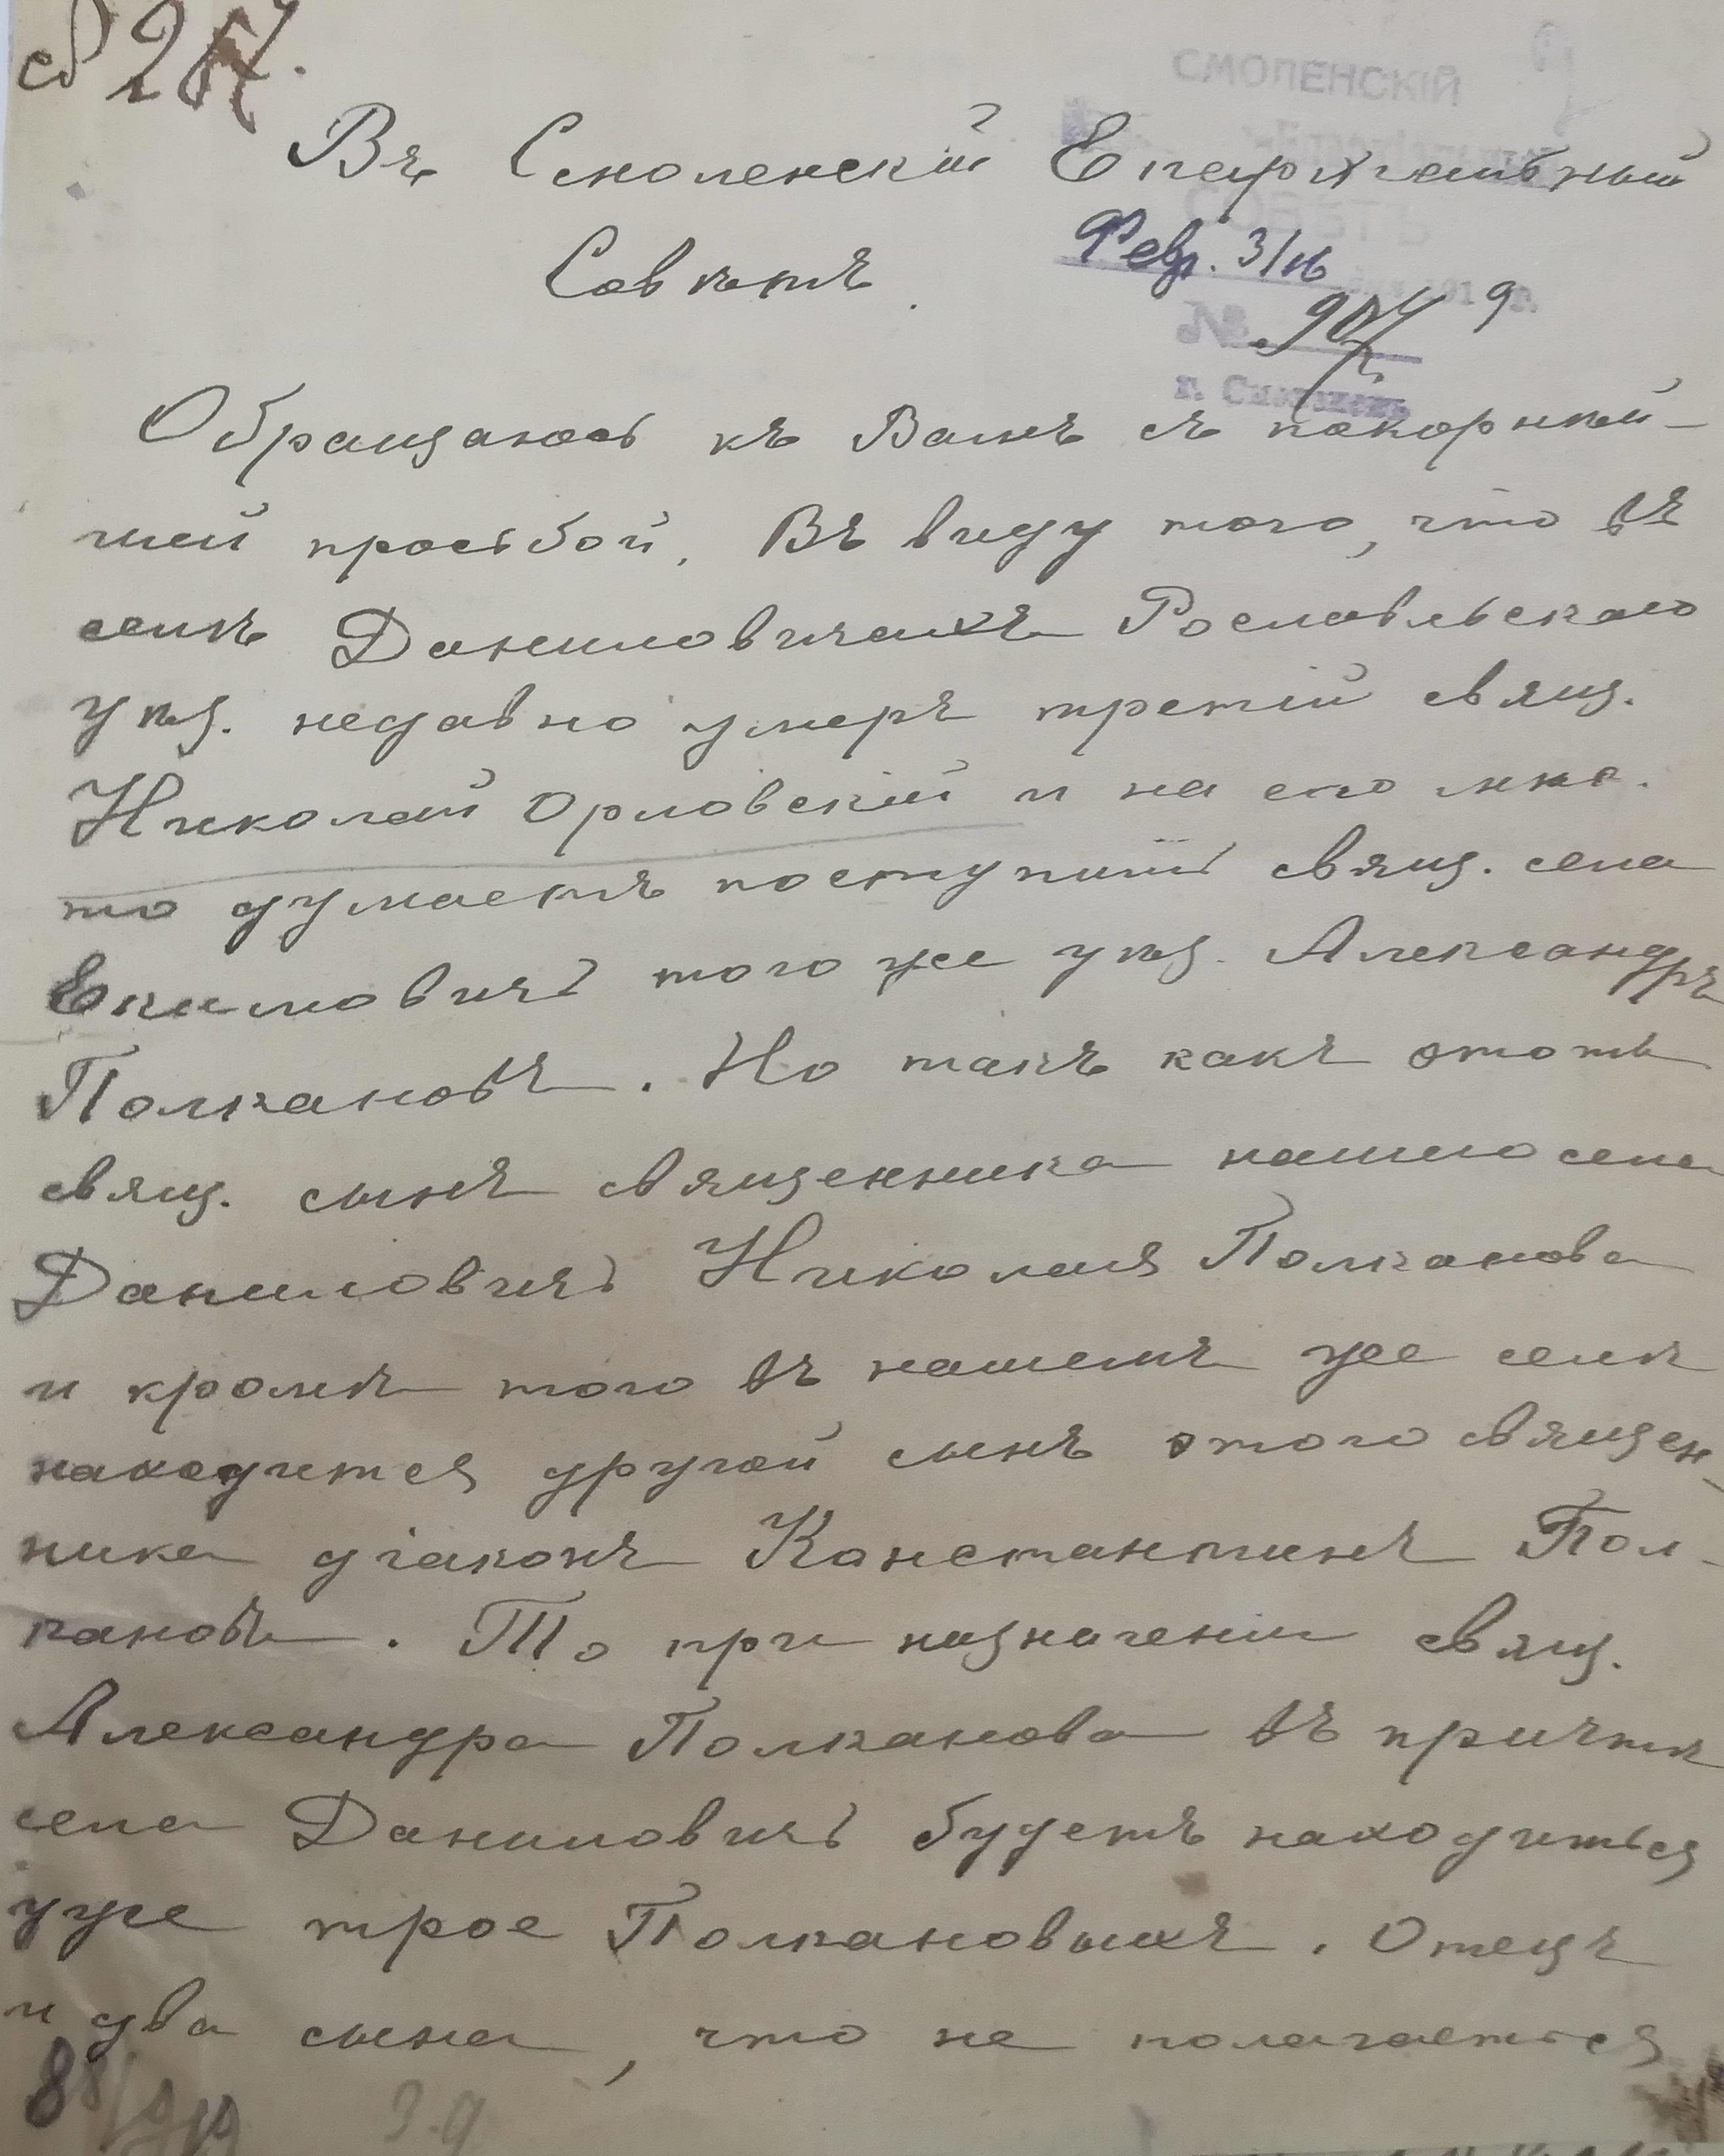 № 267.
СМОЛЕНСКІЙ
Въ Смоленскій Епархіальный
СОВѢТЪ
Совѣтъ.
Февр. 3/16
1919 г.
№ 907
г. Смоленскъ
Обращаюсь къ Вамъ съ покорнѣй-
шей просьбой. Въ виду того, что въ
селѣ Даниловичахъ Рославльскаго
уѣзд. недавно умеръ третій свящ.
Николай Орловскій и на его мѣс.
то думаетъ поступить свящ. села
Екимовичъ того же уѣзд. Александръ
Полкановъ. Но такъ какъ этотъ
свящ. сынъ священника нашего села
Даниловичъ Николая Полканова
и кромѣ того въ нашемъ же селѣ
находится другой сынъ этого священ-
ника діаконъ Константинъ Пол-
кановъ. То при назначеніи свящ.
Александра Полканова въ причтѣ
села Даниловичъ будетъ находиться
уже трое Полкановыхъ. Отецъ
и два сына, что не полагается
88/1919
39